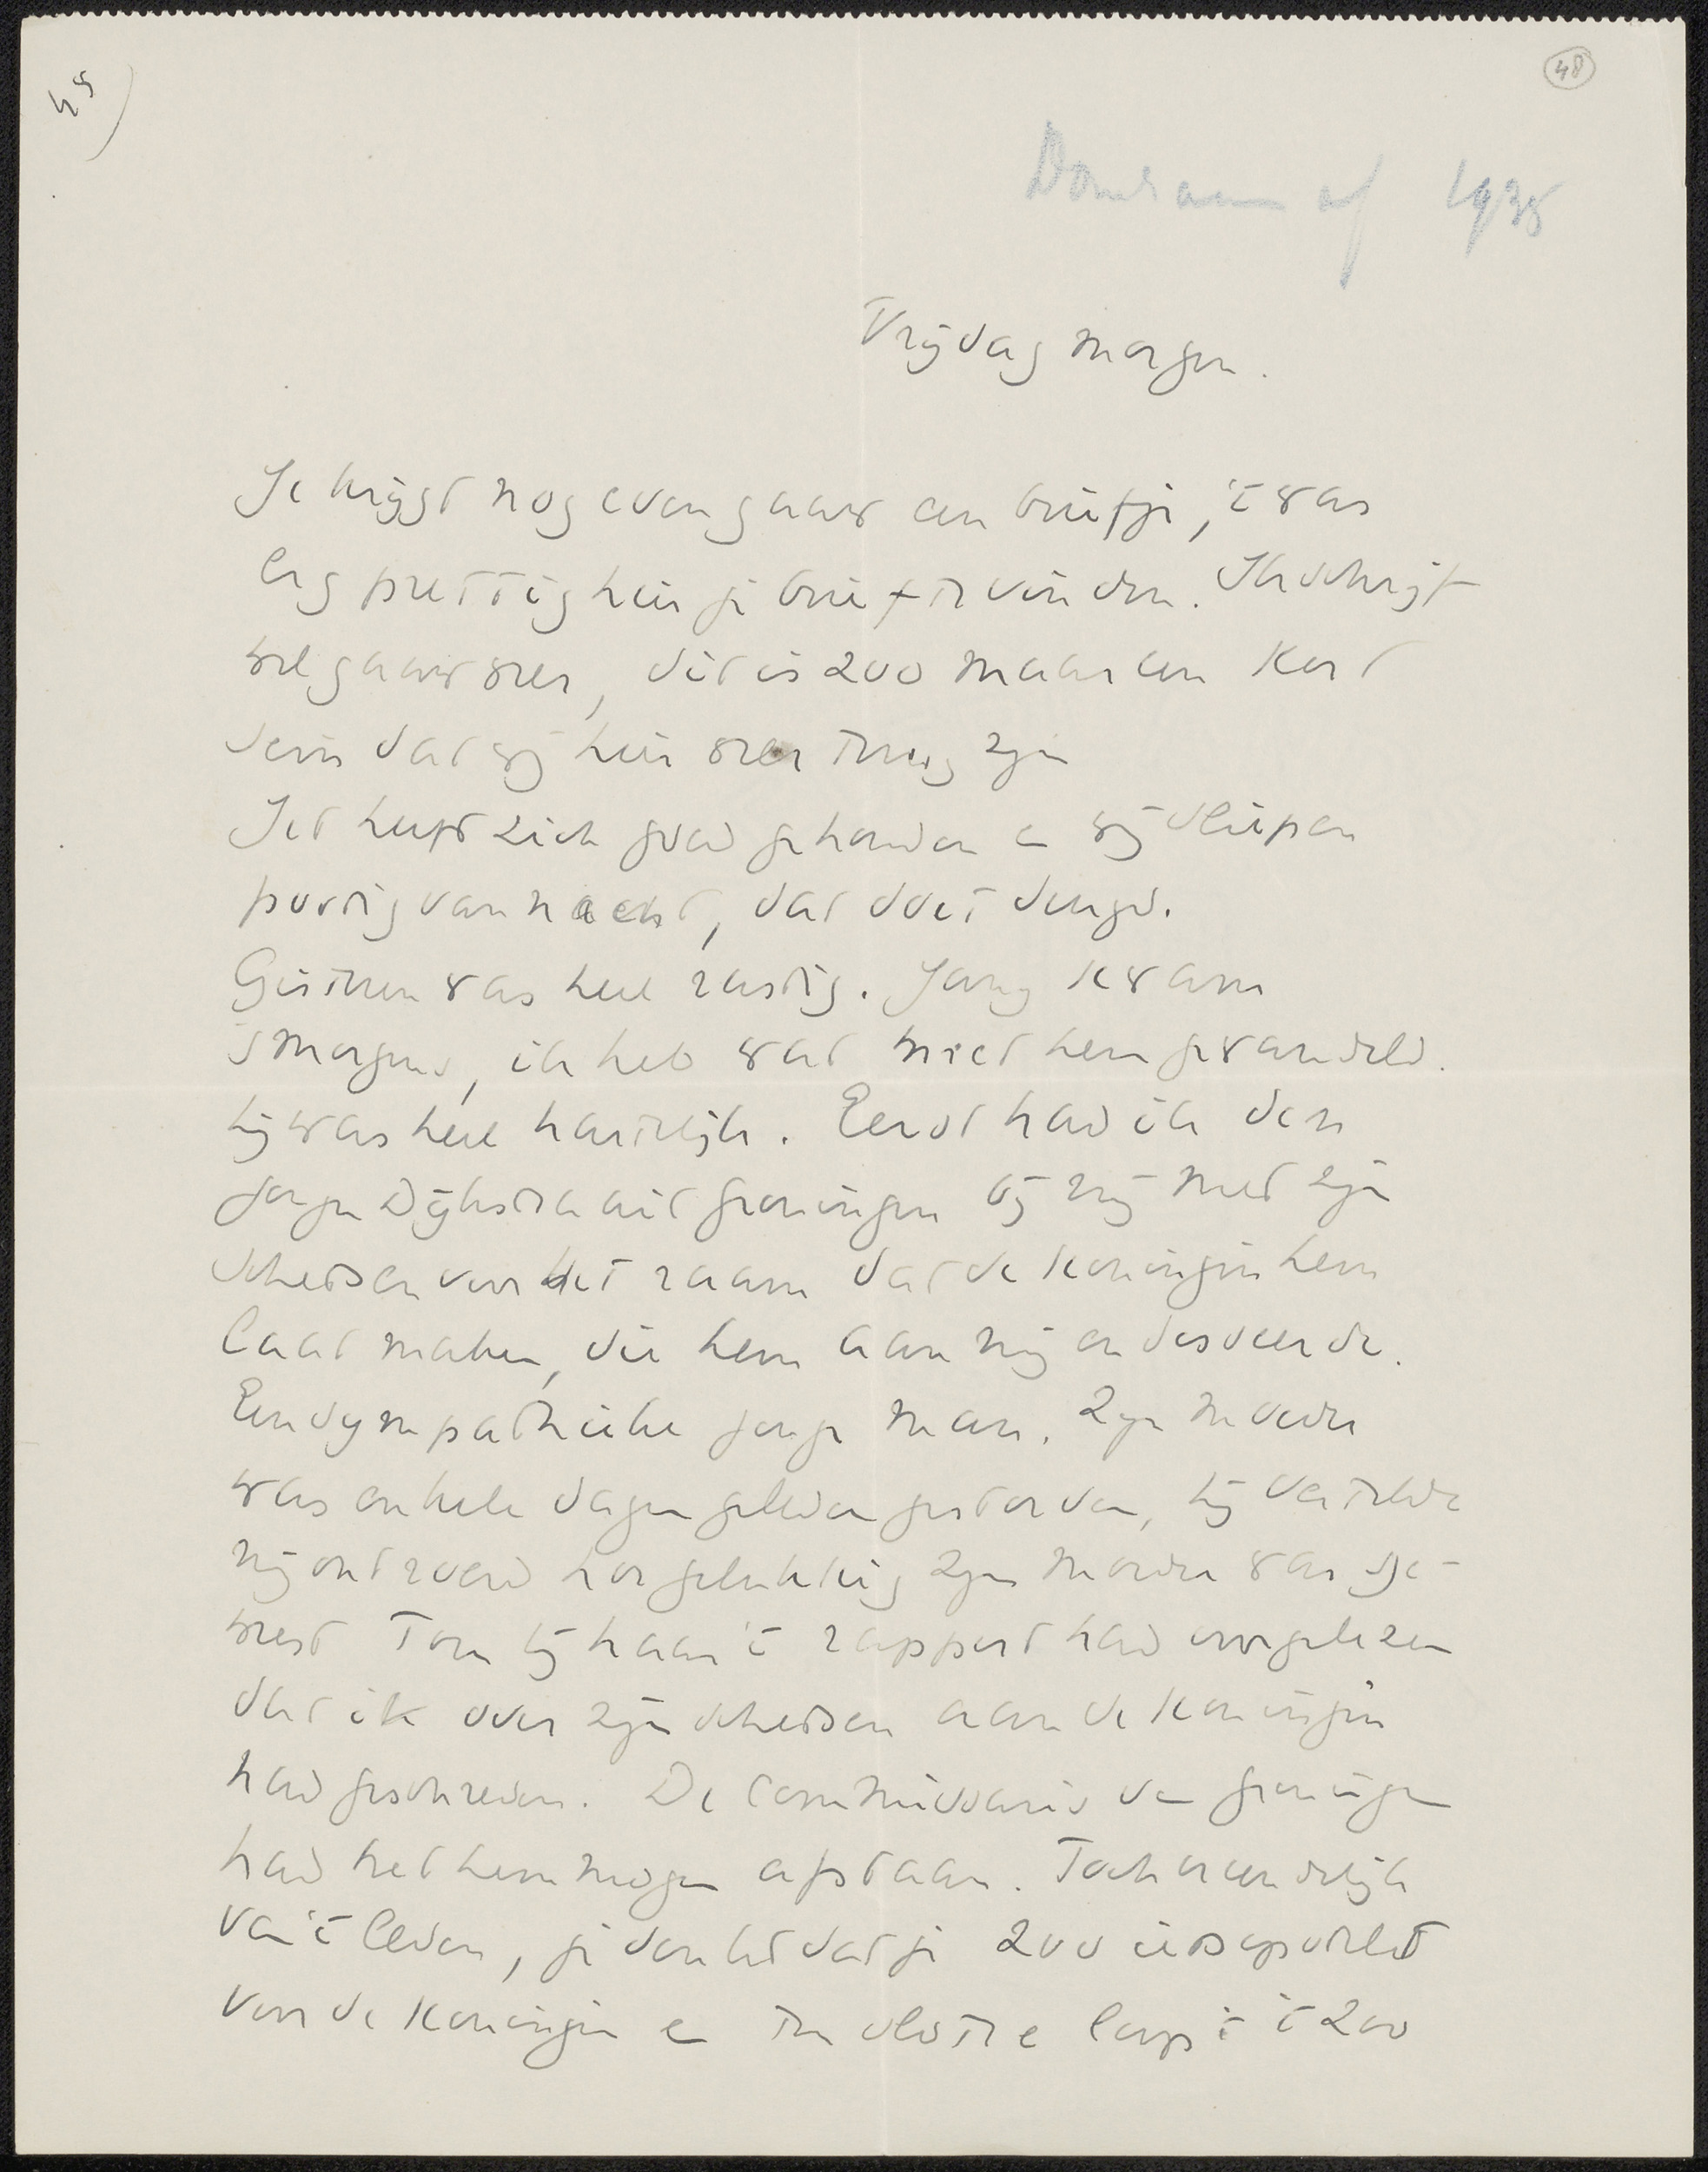 45)
48
Domburg af 1938
Vrijdag morgen.
Je krijgt nog even gauw een briefje, 't was
erg prettig hier je brief te vinden. Ik schrijf
wel gauw weer, dit is zoo maar een kort
sein dat wij hier weer terug zijn
Jet heeft zich goed gehouden en wij sliepen
pootig van nacht, dat doet deugd.
Gisteren was heel rustig. Jany kwam
s'morgens, ik heb wat met hem gewandeld.
hij was heel hartelijk. Eerst had ik den
jongen Dijkstra uit Groningen bij mij met zijn
schetsen voor het raam dat de Koningin hem
laat maken, die hem aan mij adviseerde.
Een sympathieke jonge man. Zijn moeder
was enkele dagen geleden gestorven, hij vertelde
mij ontroerd hoe gelukkig zijn moeder was ge-
weest toen hij haar 't rapport had voorgelezen
dat ik over zijn schetsen aan de Koningin
had geschreven. De Commissaris van Groningen
had het hem mogen afstaan. Toch wonderlijk
van 't leven, je denkt dat je zoo iets opstelt
voor de Koningin en ten slotte loopt 't zoo